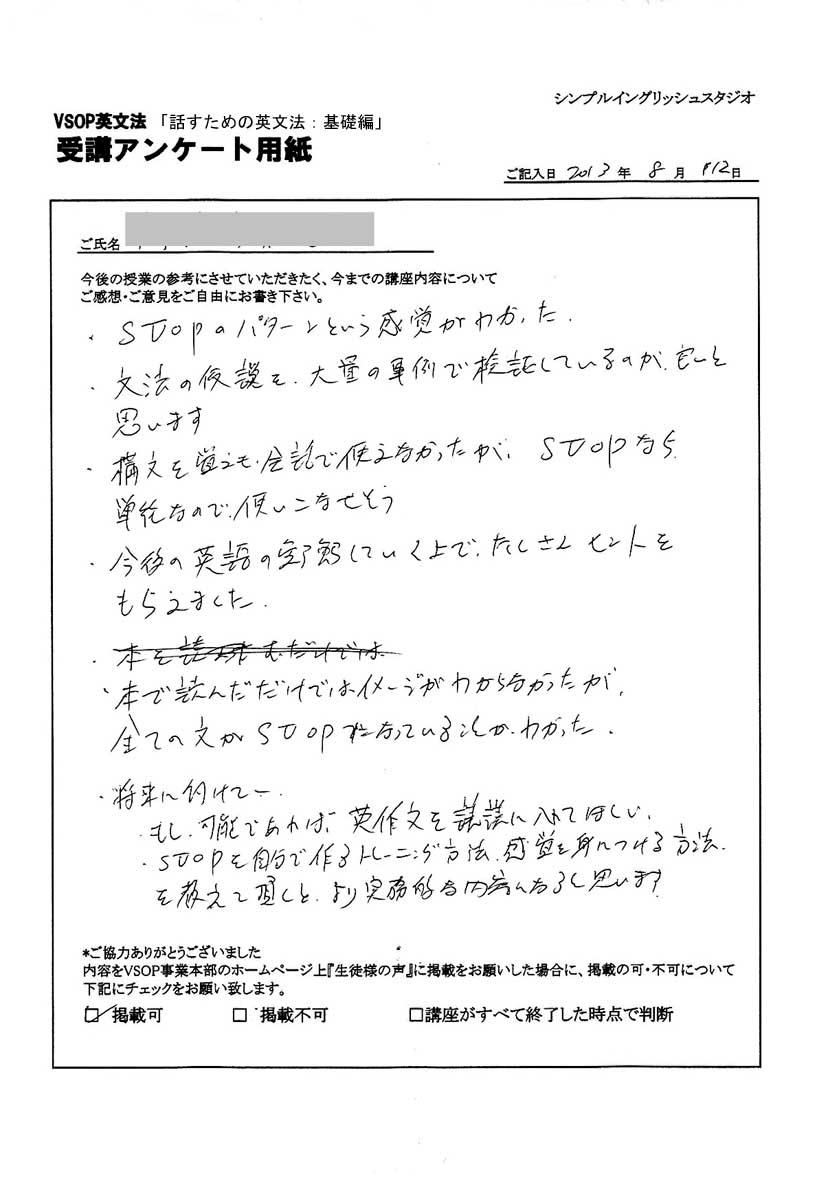 シンプルイングリッシュスタジオ
VSOP英文法「話すための英文法：基礎編」
受講アンケート用紙
ご記入日 2013年 8月 12日
ご氏名
今後の授業の参考にさせていただきたく、今までの講座内容について
ご感想・ご意見をご自由にお書き下さい。
・SVOPのパターンという感覚がわかった.
・文法の仮説を、大量の事例で検証しているのが、良いと
思います
・構文を覚えても、会話で使えなかったが、SVOPなら
単純なので、使いこなせそう
・今後の英語の学習していく上で、たくさんヒントを
もらえました.
・本を読 むだけでは
・本で読んだだけではイメージがわからなかったが、
全ての文がSVOPになっていることが、わかった.
・将来に付けてー
・もし、可能であれば、英作文を講義に入れてほしい、
・SVOPを自分で作るトレーニング方法、感覚を身につける方法、
を教えて頂くと、より実務的な内容になると思います
*ご協力ありがとうございました
内容をVSOP事業本部のホームページ上『生徒様の声』に掲載をお願いした場合に、掲載の可・不可について
下記にチェックをお願い致します。
☑ 掲載可 □ 掲載不可 □講座がすべて終了した時点で判断